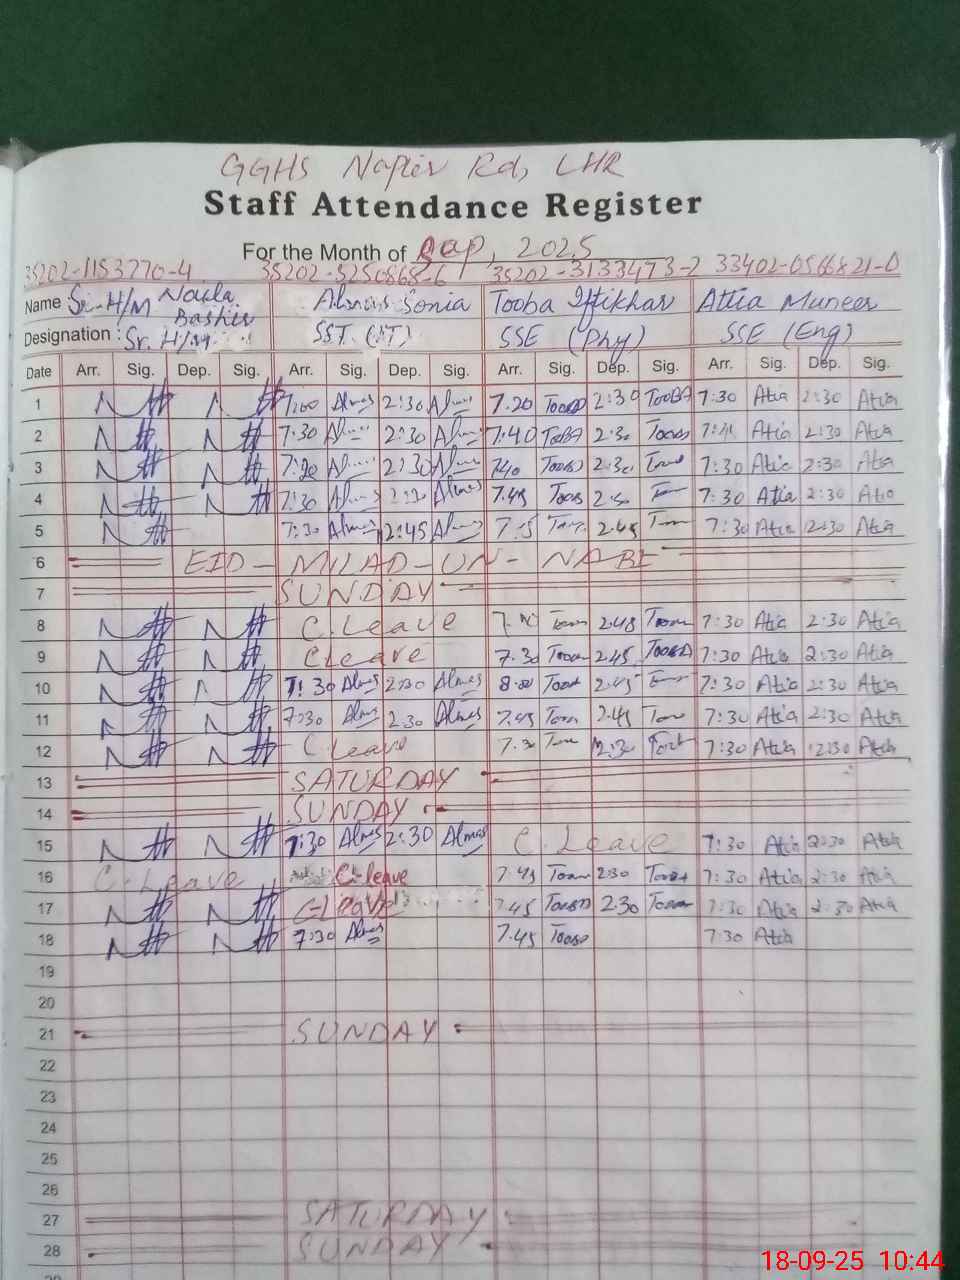 GGHS Napier Rd, LHR
Staff Attendance Register
For the Month of Sep, 2025
35202-1153770-4 35202-5250868-6 35202-3133473-2 33402-0566821-0
Name Sr. H/M Naila Bashir Almas Sonia Tooba Iftikhar Attia Muneer
Designation : Sr. H/M SST (IT) SSE (Phy) SSE (Eng)
Date Arr. Sig. Dep. Sig. Arr. Sig. Dep. Sig. Arr. Sig. Dep. Sig. Arr. Sig. Dep. Sig.
1 7:00 Almas 2:30 Almas 7.20 Tooba 2:30 TOOBA 7:30 Atia 2:30 Atia
2 7:30 Almas 2:30 Almas 7:40 TOBA 2:30 Tooba Atia 2:30 Atia
3 7:20 Almas 2:30 Almas 740 Tooba 2:30 7:30 Atia 2:30 Atia
4 7:30 Almas 2:30 Almas 7.45 Tooba 7:30 Atia 2:30 Atia
5 7:30 Almas 2:45 Almas 2.45 7:30 Atia 2:30 Atia
6 EID - MILAD - UN - NABI
7 SUNDAY
8 C. Leave 2.45 7:30 Atia 2:30 Atia
9 C Leave 7.30 Tooba 2.45 Tooba 7:30 Atia 2:30 Atia
10 7:30 Almas 2:30 Almas 8.00 Tooba 2.45 7:30 Atia 2:30 Atia
11 7:30 Almas 2:30 Almas 7.45 2.45 7:30 Atia 2:30 Atia
12 C Leave 7.30 2:30 7:30 Atia 2:30 Atia
13 SATURDAY
14 SUNDAY
15 7:30 Almas 2:30 Almas C. Leave 7:30 Atia 2:30 Atia
16 C. Leave C-leave 7.45 Tooba 2:30 Tooba 7:30 Atia 2:30 Atia
17 C-Leave 7.45 Tooba 2:30 Tooba 7:30 Atia 2:30 Atia
18 7:30 Almas 7.45 Tooba 7:30 Atia
19
20
21 SUNDAY
22
23
24
25
26
27 SATURDAY
28 SUNDAY
18-09-25 10:44